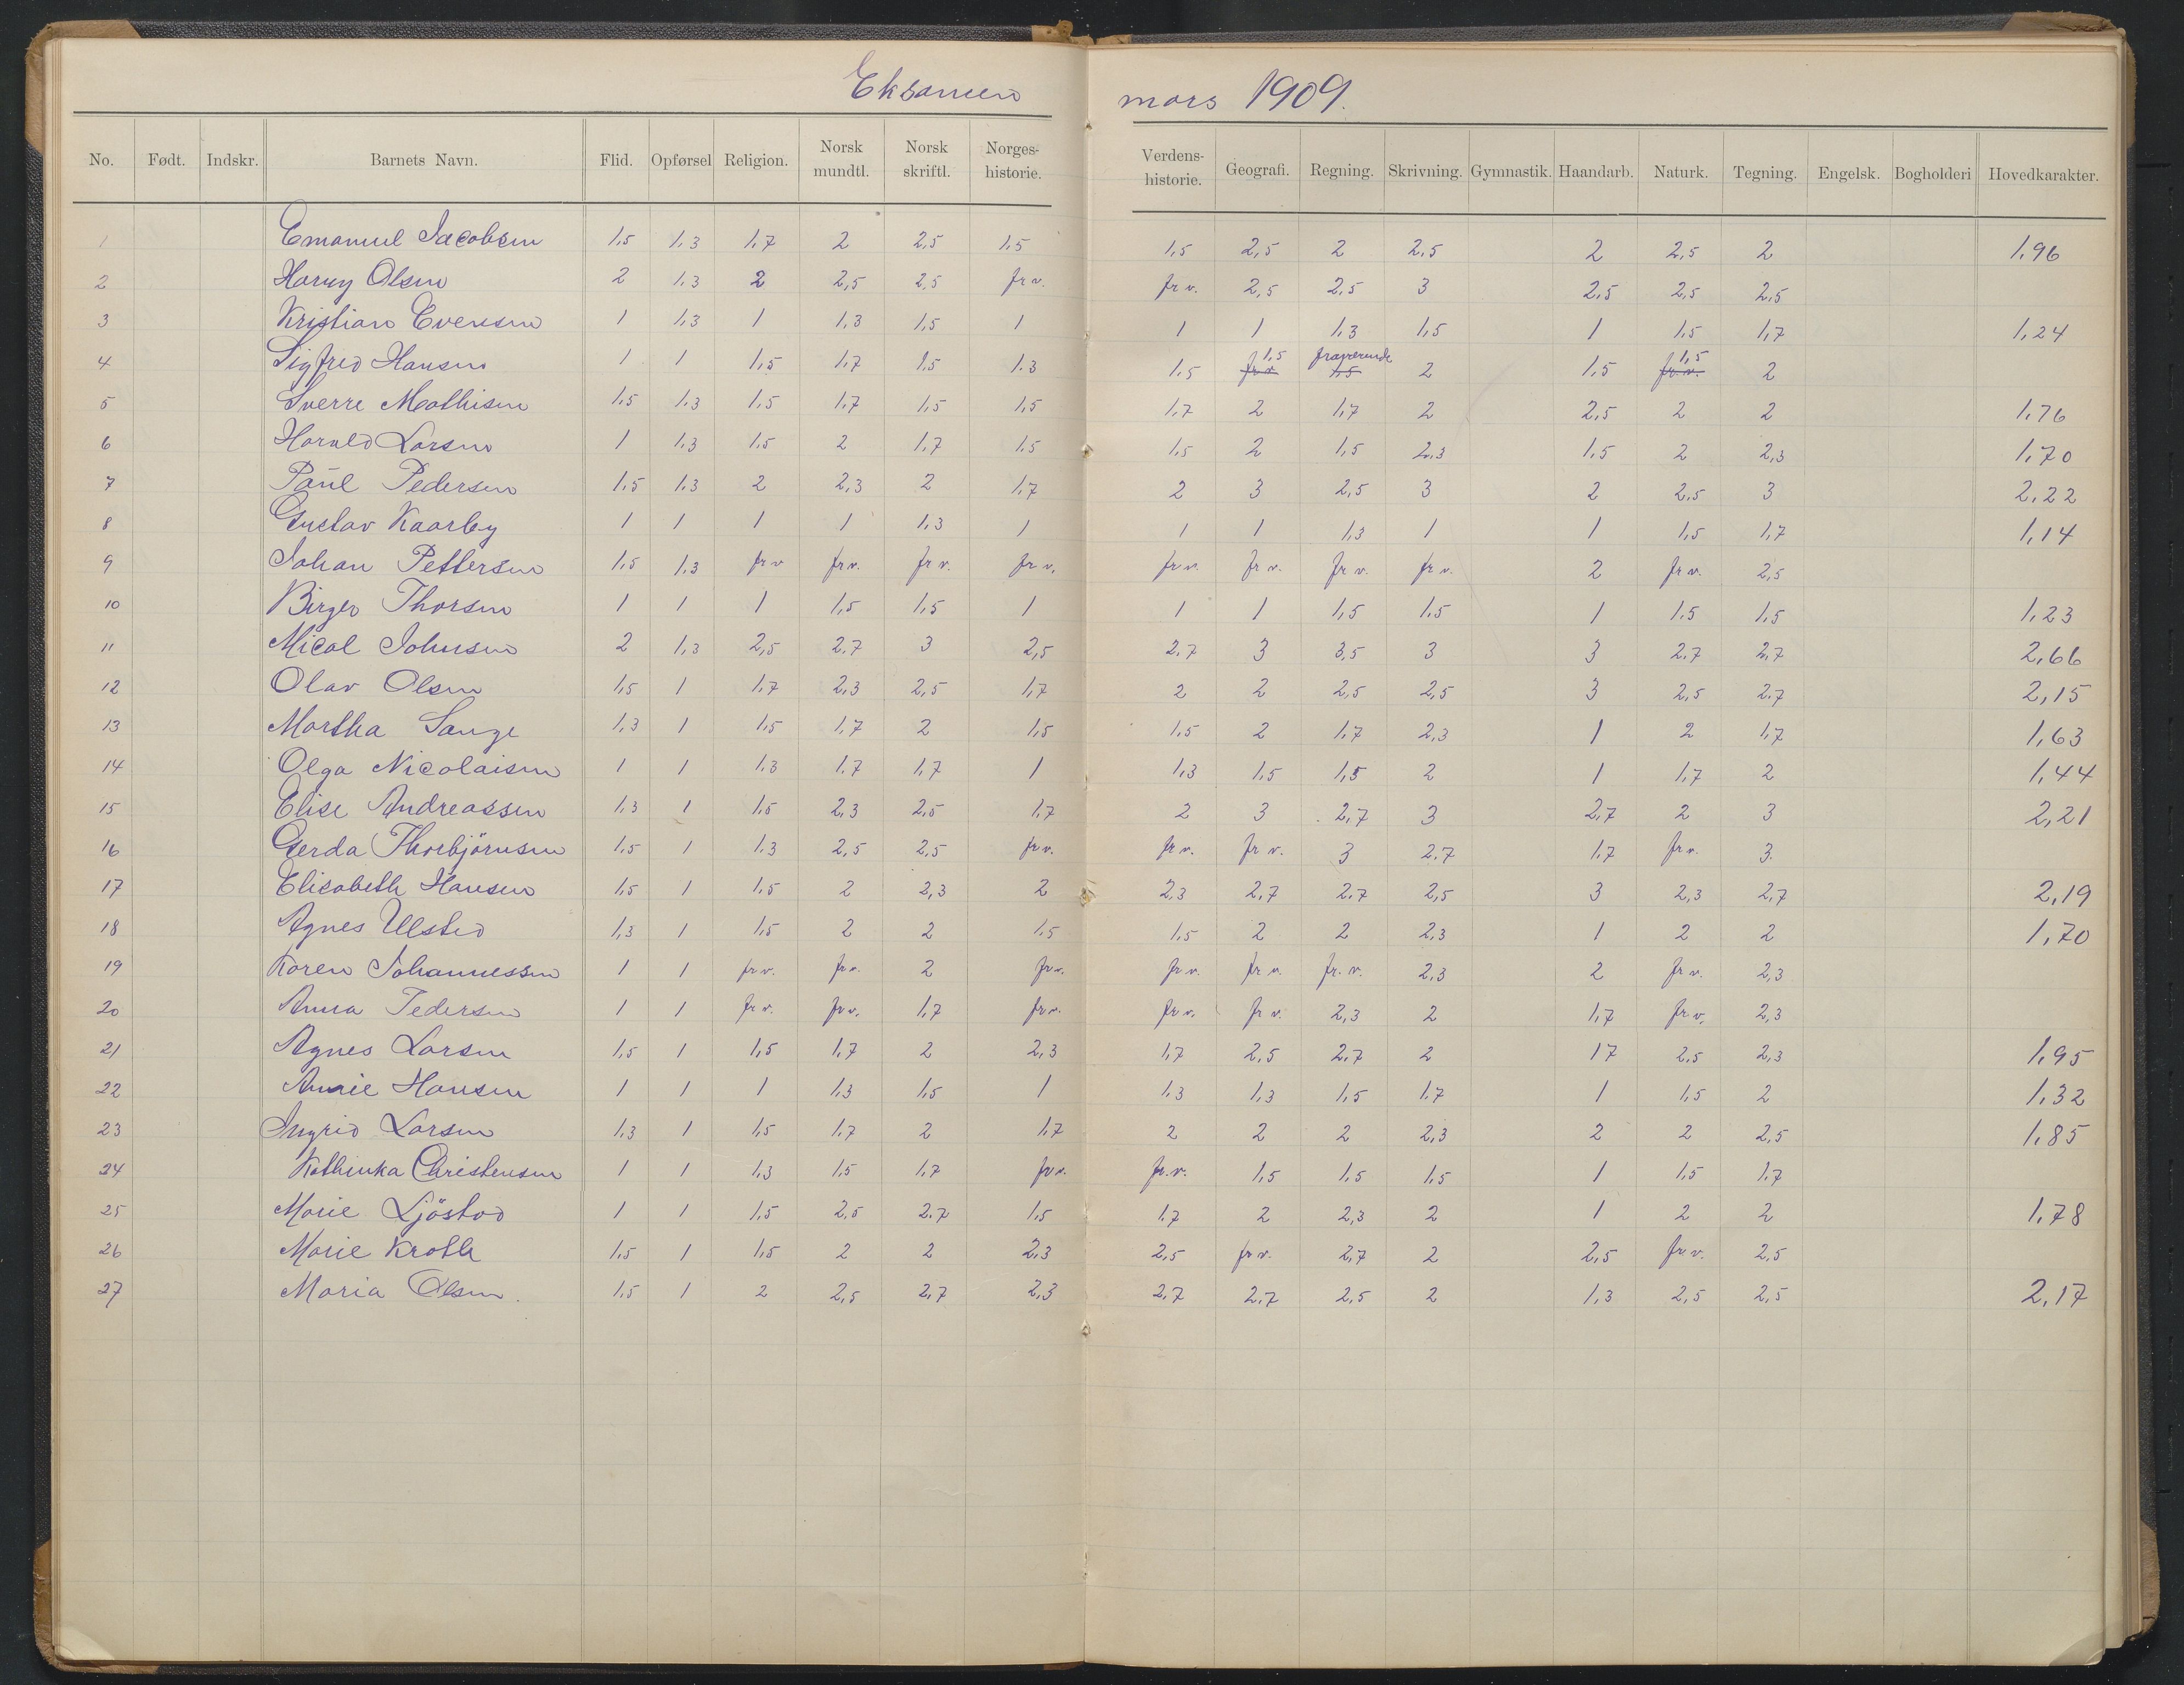 Eksamen mars 1909.
No. Født. Indskr. Barnets Navn. Flid. Opførsel Religion. Norsk mundtl. Norsk skriftl. Norges-historie. Verdens-historie. Geografi. Regning. Skrivning. Gymnastik. Haandarb. Naturk. Tegning. Engelsk. Bogholderi Hovedkarakter.
1 Emanuel Jacobsen 1,5 1,3 1,7 2 2,5 1,5 1,5 2,5 2 2,5 2 2,5 2 1,96
2 Harry Olsen 2 1,3 2 2,5 2,5 fr.v. fr.v. 2,5 2,5 3 2,5 2,5 2,5
3 Kristian Evensen 1 1,3 1 1,3 1,5 1 1 1 1,3 1,5 1 1,5 1,7 1,24
4 Sigfred Hansen 1 1 1,5 1,7 1,5 1.3 1.5 fr.v. 1,5 1,5 fraværende 2 1,5 fr.v. 1,5 2
5 Sverre Mathisen 1,5 1,3 1,5 1,7 1,5 1,5 1,7 2 1,7 2 2,5 2 2 1,76
6 Harald Larsen 1 1,3 1,5 2 1,7 1,5 1,5 2 1,5 2,3 1,5 2 2,3 1,70
7 Paul Pedersen 1,5 1,3 2 2,3 2 1,7 2 3 2,5 3 2 2,5 3 2,22
8 Gustav Kaarby 1 1 1 1 1,3 1 1 1 1,3 1 1 1,5 1,7 1,14
9 Johan Pettersen 1,5 1,3 fr.v fr.v. fr.v. fr.v. fr.v. fr.v. fr.v. fr.v. 2 fr.v. 2,5
10 Birger Thorsen 1 1 1 1,5 1,5 1 1 1 1,5 1,5 1 1,5 1,5 1,23
11 Mical Johnsen 2 1,3 2,5 2.7 3 2,5 2.7 3 3,5 3 3 2.7 2,7 2,66
12 Olav Olsen 1,5 1 1,7 2,3 2,5 1,7 2 2 2,5 2,5 3 2,5 2.7 2,15
13 Martha Sange 1,3 1 1,5 1,7 2 1,5 1,5 2 1,7 2,3 1 2 1,7 1,63
14 Olga Nicolaisen 1 1 1,3 1.7 1,7 1 1,3 1,5 1,5 2 1 1,7 2 1,44
15 Elise Andreassen 1,3 1 1,5 2,3 2,5 1,7 2 3 2,7 3 2,7 2 3 2,21
16 Gerda Thorbjörnsen 1,5 1 1.3 2,5 2,5 fr.v. fr.v. fr.v. 3 2.7 1,7 fr.v. 3
17 Elisabeth Hansen 1,5 1 1,5 2 2,3 2 2,3 2,7 2.7 2,5 3 2,3 2,7 2,19
18 Agnes Ulsted 1,3 1 1,5 2 2 1.5 1,5 2 2 2,3 1 2 2 1,70
19 Karen Johannessen 1 1 fr.v. fr.v. 2 fr.v. fr.v. fr.v. fr.v. 2,3 2 fr.v. 2,3
20 Anna Pedersen 1 1 fr.v. fr.v. 1,7 fr.v. fr.v. fr.v. 2,3 2 1,7 fr.v. 2,3
21 Agnes Larsen 1,5 1 1,5 1,7 2 2,3 1,7 2,5 2.7 2 17 2,5 2,3 1,95
22 Annie Hansen 1 1 1 1,3 1,5 1 1,3 1,3 1,5 1,7 1 1,5 2 1,32
23 Ingrid Larsen 1,3 1 1,5 1,7 2 1,7 2 2 2 2,3 2 2 2,5 1,85
24 Kathinka Christensen 1 1 1,3 1,5 1,7 fr.v. fr.v. 1,5 1,5 1,5 1 1,5 1,7
25 Marie Ljöstad 1 1 1,5 2,5 2.7 1,5 1,7 2 2,3 2 1 2 2 1,78
26 Marie Kroth 1,5 1 1,5 2 2 2,3 2,5 fr.v. 2,7 2 2,5 fr.v. 2,5
27 Maria Olsen. 1,5 1 2 2,5 2,7 2,3 2,7 2,7 2,5 2 1,3 2,5 2,5 2,17